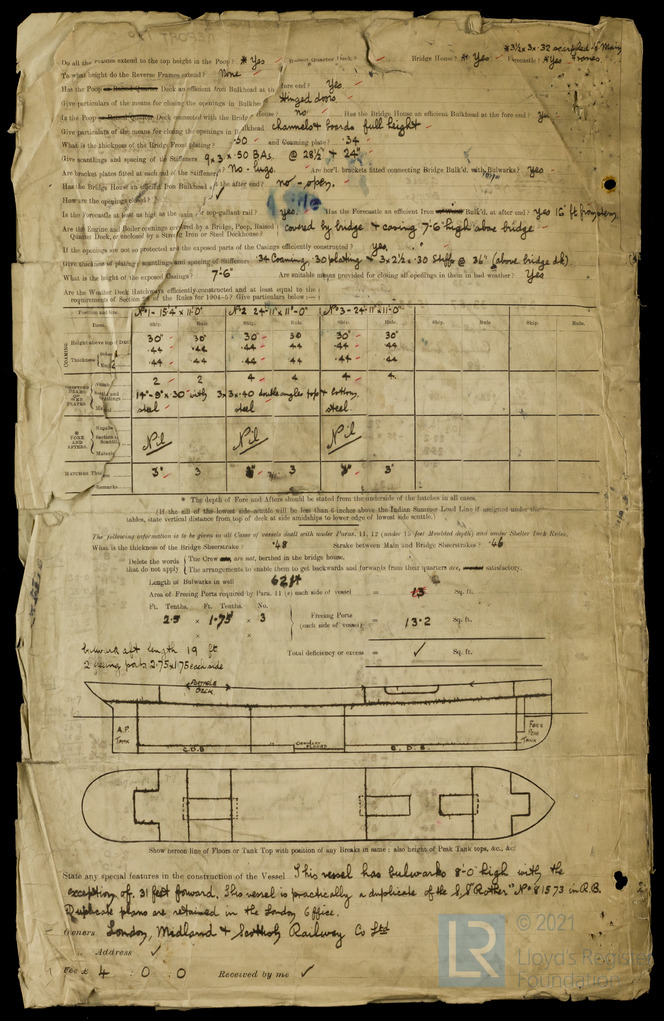 *3½ x 3 x .32 scarphed
Do all the Frames extend to the top height in the Poop? * Yes Raised Quarter Deck? Bridge House? * Yes Forecastle? * Yes
To what height do the Reverse Frames extend? None
Has the Poop an efficient Bulkhead at the fore end? Yes.
Give particulars of the means for closing the openings in Bulkhead Hinged doors
Is the Poop connected with the Bridge House? no Has the Bridge House an efficient Bulkhead at the fore end?
Give particulars of the means for closing the openings in Bulkhead channels & boards full height
What is the thickness of the Bridge Front plating? .30 and Coaming plate? .34
Give scantlings and spacing of the Stiffeners 9 x 3 x .50 BAs. @ 28½" & 24"
Are bracket plates fitted at each end of the Stiffeners? No - lugs. Are hor'l. brackets fitted connecting Bridge Bulk'd. with Bulwarks? Yes
Has the Bridge House an efficient Iron Bulkhead at the after end? no - open.
How are the openings closed? ✓
Is the Forecastle at least as high as the main or top-gallant rail? yes. Has the Forecastle an efficient Iron Bulk'd. at after end? yes 16 ft from stem
Are the Engine and Boiler openings covered by a Bridge, Poop, Raised Quarter Deck, or enclosed by a Strong Iron or Steel Deckhouse? covered by bridge & casing 7'-6" high above bridge
If the openings are not so protected are the exposed parts of the Casings efficiently constructed? yes
Give thickness of plating; scantlings and spacing of Stiffeners .34 Coaming .30 plating & 3 x 2½ x .30 stiffs @ 36" (above bridge dk)
What is the height of the exposed Casings? 7'-6" Are suitable means provided for closing all openings in them in bad weather? Yes
Are the Weather Deck Hatchways efficiently constructed and at least equal to the requirements of Section of the Rules for 1904-5? Give particulars below:—
Position and No 1 - 15'4 x 11'-0" No 2 24'-11" x 11'-0" No 3 - 24'-11" x 11'-0"
Item. Ship. Rule. Ship. Rule. Ship. Rule. Ship. Rule. Ship. Rule.
COAMING Height above top of Deck 30" 30" 30" 30" 30" 30"
Thickness .44 .44 .44 .44 .44 .44
.44 .44 .44 .44 .44 .44
2 2 4 4 4 4
14" - 9" x 30" with 3 x 3 x .40 double angles top & bottom.
steel steel steel.
* FORE AND AFTERS. Number Nil Nil Nil
Material
HATCHES Thickness 3" 3 3" 3 3" 3"
Remarks
* The depth of Fore and Afters should be stated from the underside of the hatches in all cases.
(If the sill of the lowest side scuttle will be less than 6 inches above the Indian Summer Load Line if assigned under the
tables, state vertical distance from top of deck at side amidships to lower edge of lowest side scuttle.)
The following information is to be given in all Cases of vessels dealt with under Paras. 11, 12 (with under 15 feet Moulded depth) and under Shelter Deck Rules.
What is the thickness of the Bridge Sheerstrake? .48 Strake between Main and Bridge Sheerstrakes? .46
Delete the words that do not apply { The Crew are, are not, berthed in the bridge house.
The arrangements to enable them to get backwards and forwards from their quarters are, satisfactory.
Length of Bulwarks in well 62 ft
Area of Freeing Ports required by Para. 11 (e) each side of vessel = 13 Sq. ft.
Ft. Tenths. Ft. Tenths. No.
2.5 x 1.75 x 3 Freeing Ports (each side of vessel) = 13.2 Sq. ft.
x x
Total deficiency or excess = ✓ Sq. ft.
bulwark aft length 19 ft
2 freeing ports 2.75 x 1.75 each side
A.P. TANK
C.D.B.
C.D.B.
FORE PEAK TANK
Show hereon line of Floors or Tank Top with position of any Breaks in same: also height of Peak Tank tops, &c., &c.
State any special features in the construction of the Vessel This vessel has bulwarks 8'-0" high with the
exception of 31 feet forward. This vessel is practically a duplicate of the S.S "Rother" No 81573 in R.B.
Duplicate plans are retained in the London Office.
Owners London, Midland & Scottish Railway Co Ltd
Address ✓
Fee £ 4 : 0 : 0 Received by me ✓
LR
© 2021
Lloyd's Register
Foundation